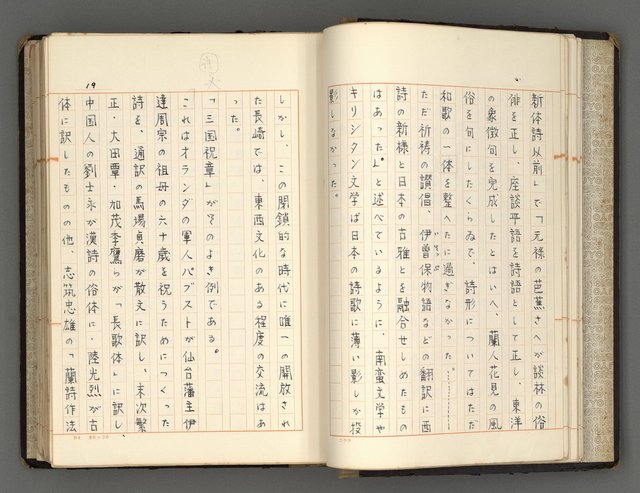 新体詩以前」で「元禄の芭蕉さへが談林の俗
俳を正し、座談平語を詩語として正し、東洋
の象徴句を完成したとはいへ、蘭人花見の風
俗を句にしたくらゐで、詩形についてはただ
和歌の一体を整へたに過ぎなかった。…………
ただ祈祷の讃倡、伊曽保物語などの翻訳に西
詩の新様と日本の古雅とを融合せしめたもの
はあった」。と述べているように、南蛮文学や
キリシタン文学は日本の詩歌に薄い影しか投
影しなかった。
しかし、この閉鎖的な時代に唯一の開放され
た長崎では、東西文化のある程度の交流はあ
った。
「三国祝章」がそのよき例である。
これはオランダの軍人バブストが仙台藩主伊
達周宗の祖母の六十歳を祝うためにつくった
詩を、通訳の馬場貞麿が散文に訳し、末次繁
正・大田覃・加茂季鷹らが「長歌体」に訳し、
中国人の劉士永が漢詩の俗体に・陸光烈が古
体に訳したものの他、志筑忠雄の「蘭詩作法
19